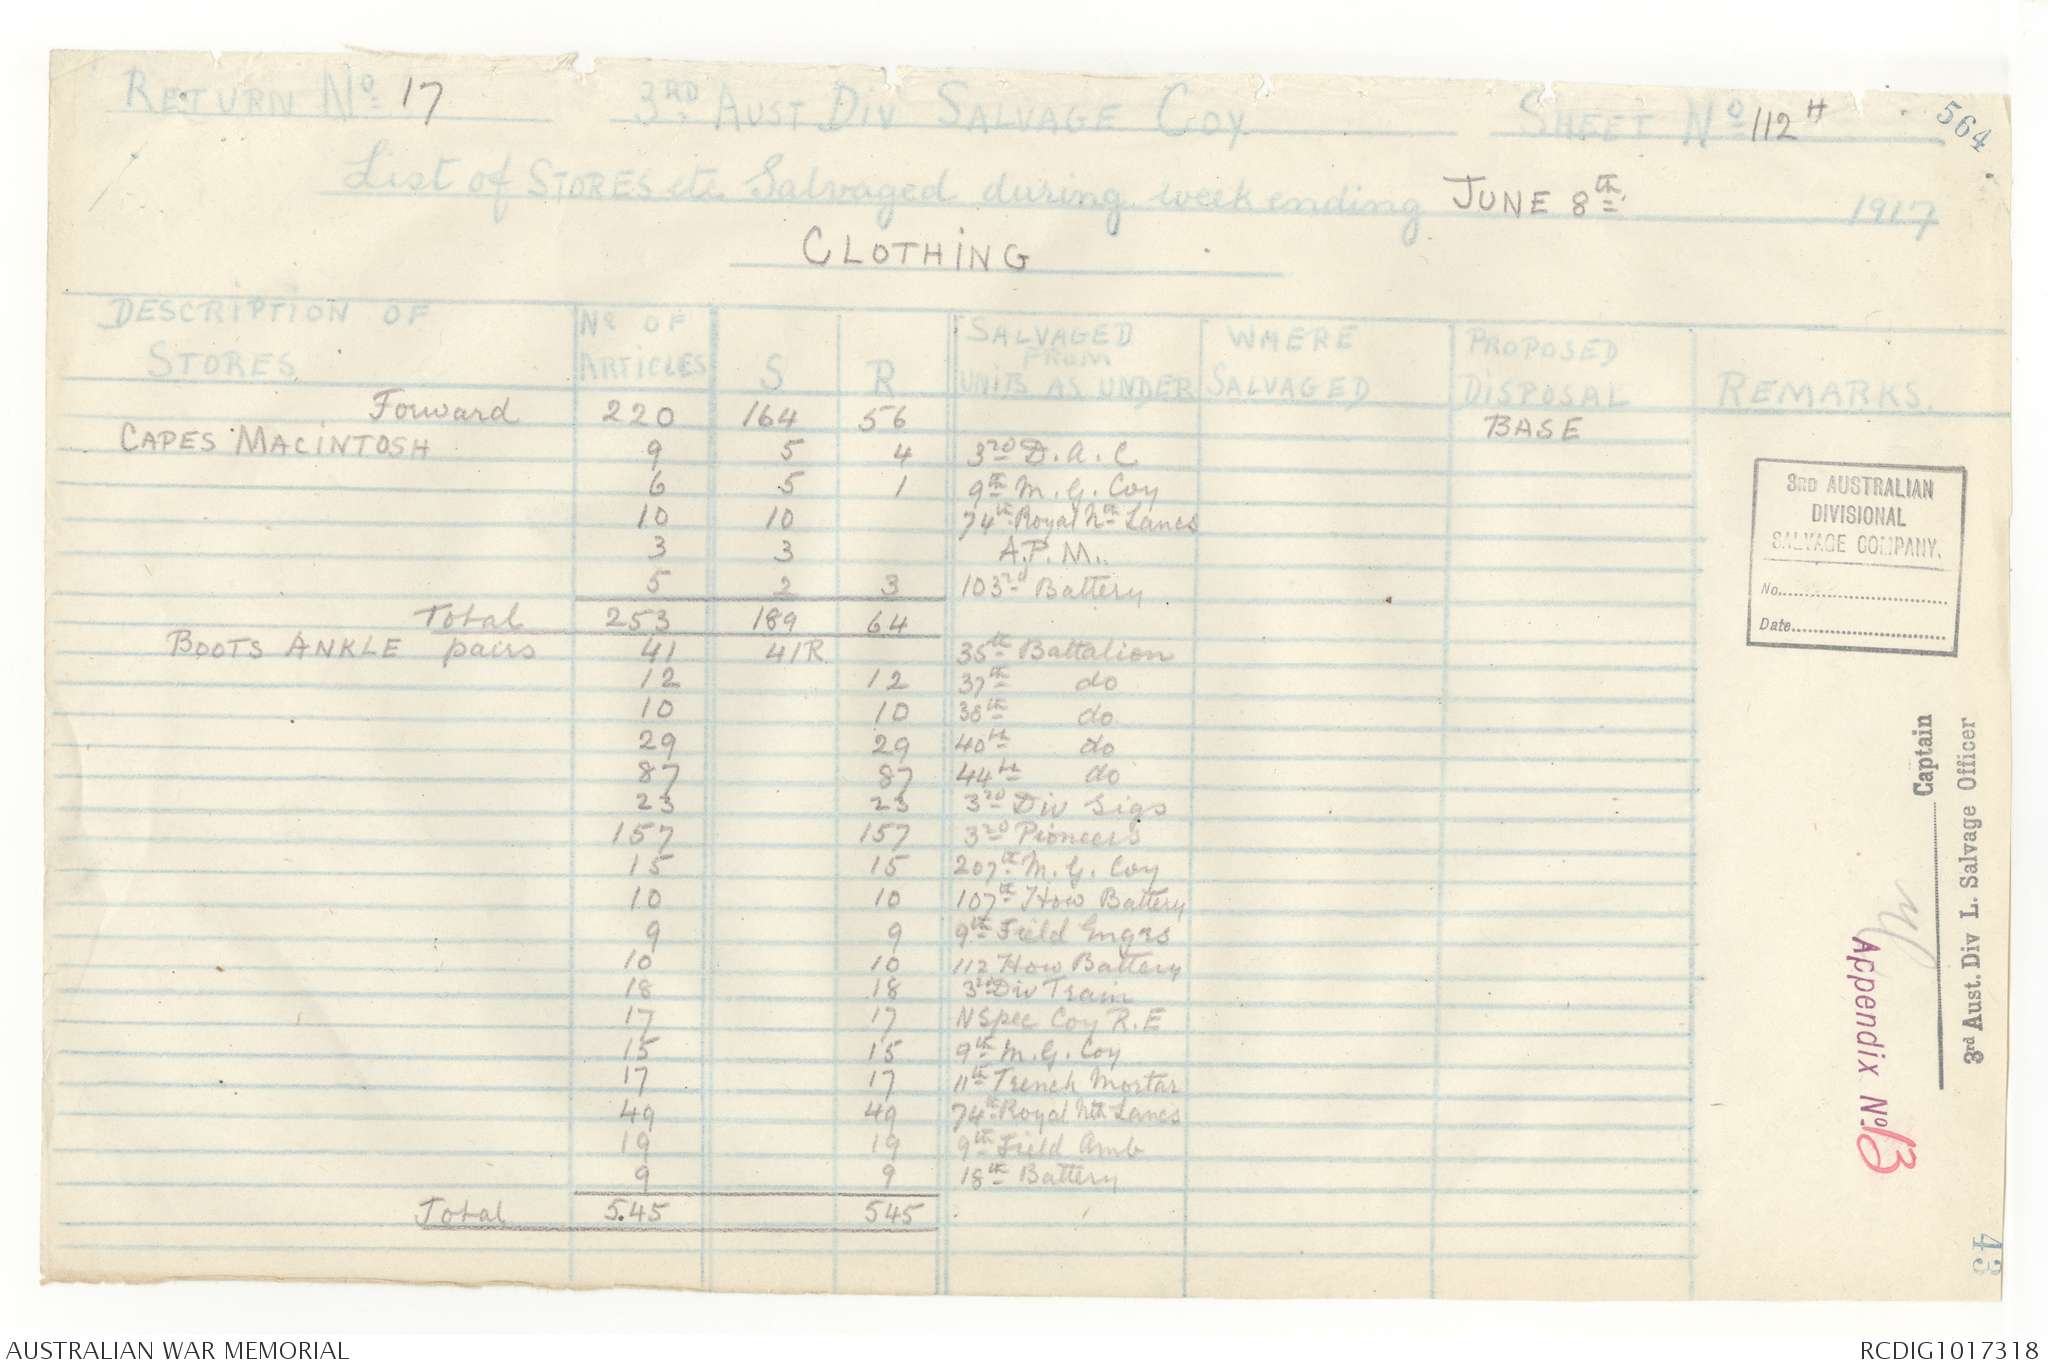 RETURN No 17 3RD AUST DIV SALVAGE COY SHEET No 112 H
564
List of STORES etc Salvaged during week ending JUNE 8th 1917
CLOTHING
DESCRIPTION OF STORES No OF ARTICLES S R SALVAGED FROM UNITS AS UNDER WHERE SALVAGED PROPOSED DISPOSAL REMARKS.
Forward 220 164 56 BASE
CAPES MACINTOSH 9 5 4 3RD D.A.C
6 5 1 9th M.G. Coy
10 10 74th Royal Nth Lancs
3 3 A.P.M.
5 2 3 103RD Battery
Total 253 189 64
BOOTS ANKLE pairs 41 41R 35th Battalion
12 12 37th do
10 10 38th do
29 29 40th do
87 87 44th do
23 23 3RD Div Sigs
157 157 3RD Pioneers
15 15 207th M.G. Coy
10 10 107th How Battery
9 9 9th Field Engrs
10 10 112 How Battery
18 18 3RD Div Train
17 17 N Spec Coy R.E
15 15 9th M.G. Coy
17 17 11th Trench Mortar
49 49 74th Royal Nth Lancs
19 19 9th Field Amb
9 9 18th Battery
Total 545 545
3RD AUSTRALIAN
DIVISIONAL
SALVAGE COMPANY.
No.
Date
Captain
3rd Aust. Div L. Salvage Officer
Appendix No. 13
43
AUSTRALIAN WAR MEMORIAL RCDIG1017318